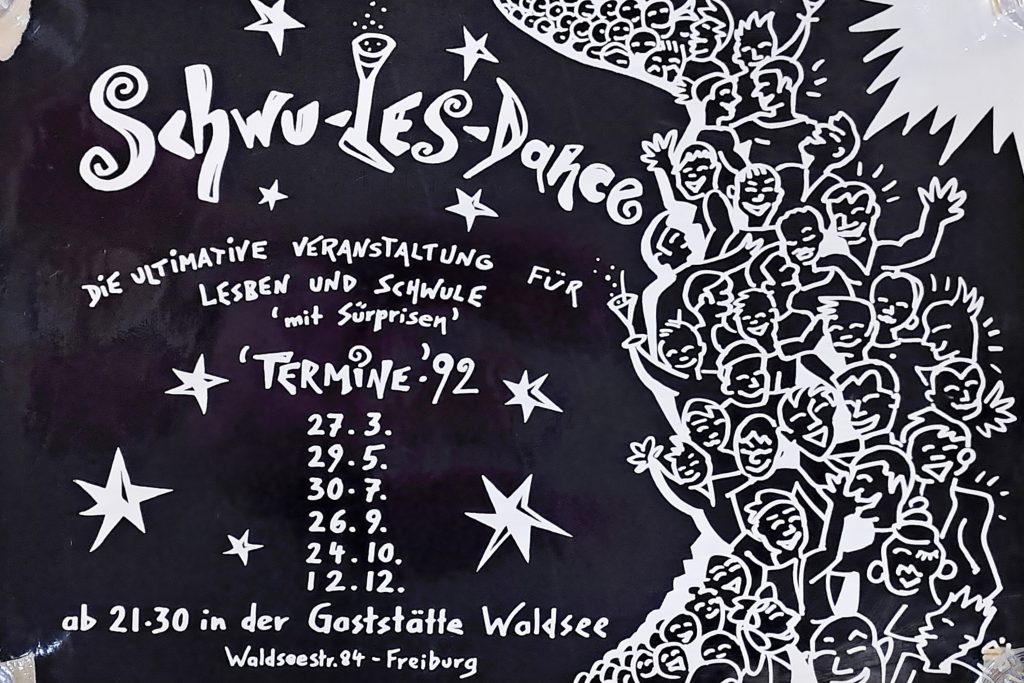 Schwu-Les-Dance
Die ultimative Veranstaltung für
Lesben und Schwule
'mit Sürprisen'
'Termine' '92
27.3.
29.5.
30.7.
26.9.
24.10.
12.12.
ab 21.30 in der Gaststätte Waldsee
Waldseestr. 84 - Freiburg